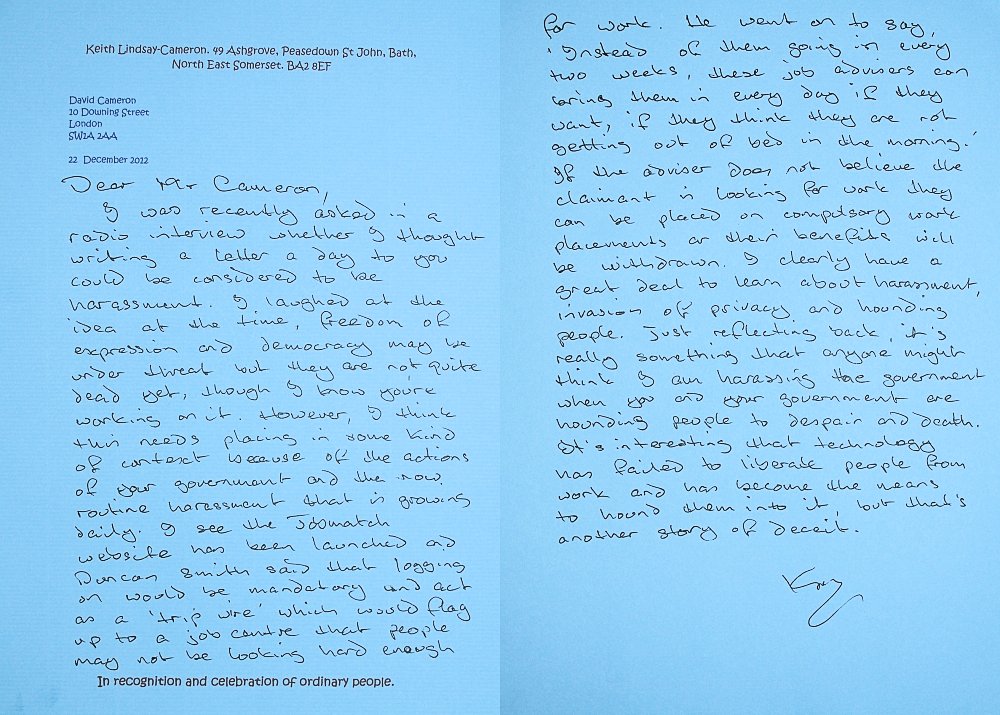 Keith Lindsay-Cameron. 49 Ashgrove, Peasedown St John, Bath,
North East Somerset. BA2 8EF
David Cameron
10 Downing Street
London
SW1A 2AA
22 December 2012
Dear Mr Cameron,
I was recently asked in a
radio interview whether I thought
writing a letter a day to you
could be considered to be
harassment. I laughed at the
idea at the time, freedom of
expression and democracy may be
under threat but they are not quite
dead yet, though I know you're
working on it. However, I think
this needs placing in some kind
of context because of the actions
of your government and the now
routine harassment that is growing
daily. I see the Jobmatch
website has been launched and
Duncan Smith said that logging
on would be mandatory and act
as a 'trip wire' which would flag
up to a job centre that people
may not be looking hard enough
In recognition and celebration of ordinary people.
for work. He went on to say,
'Instead of them going in every
two weeks, these job advisers can
bring them in every day if they
want, if they think they are not
getting out of bed in the morning.'
If the adviser does not believe the
claimant is looking for work they
can be placed on compulsory work
placements or their benefits will
be withdrawn. I clearly have a
great deal to learn about harassment,
invasion of privacy and hounding
people. Just reflecting back, it's
really something that anyone might
think I am harassing the government
when you and your government are
hounding people to despair and death.
It's interesting that technology
has failed to liberate people from
work and has become the means
to hound them into it, but that's
another story of deceit.